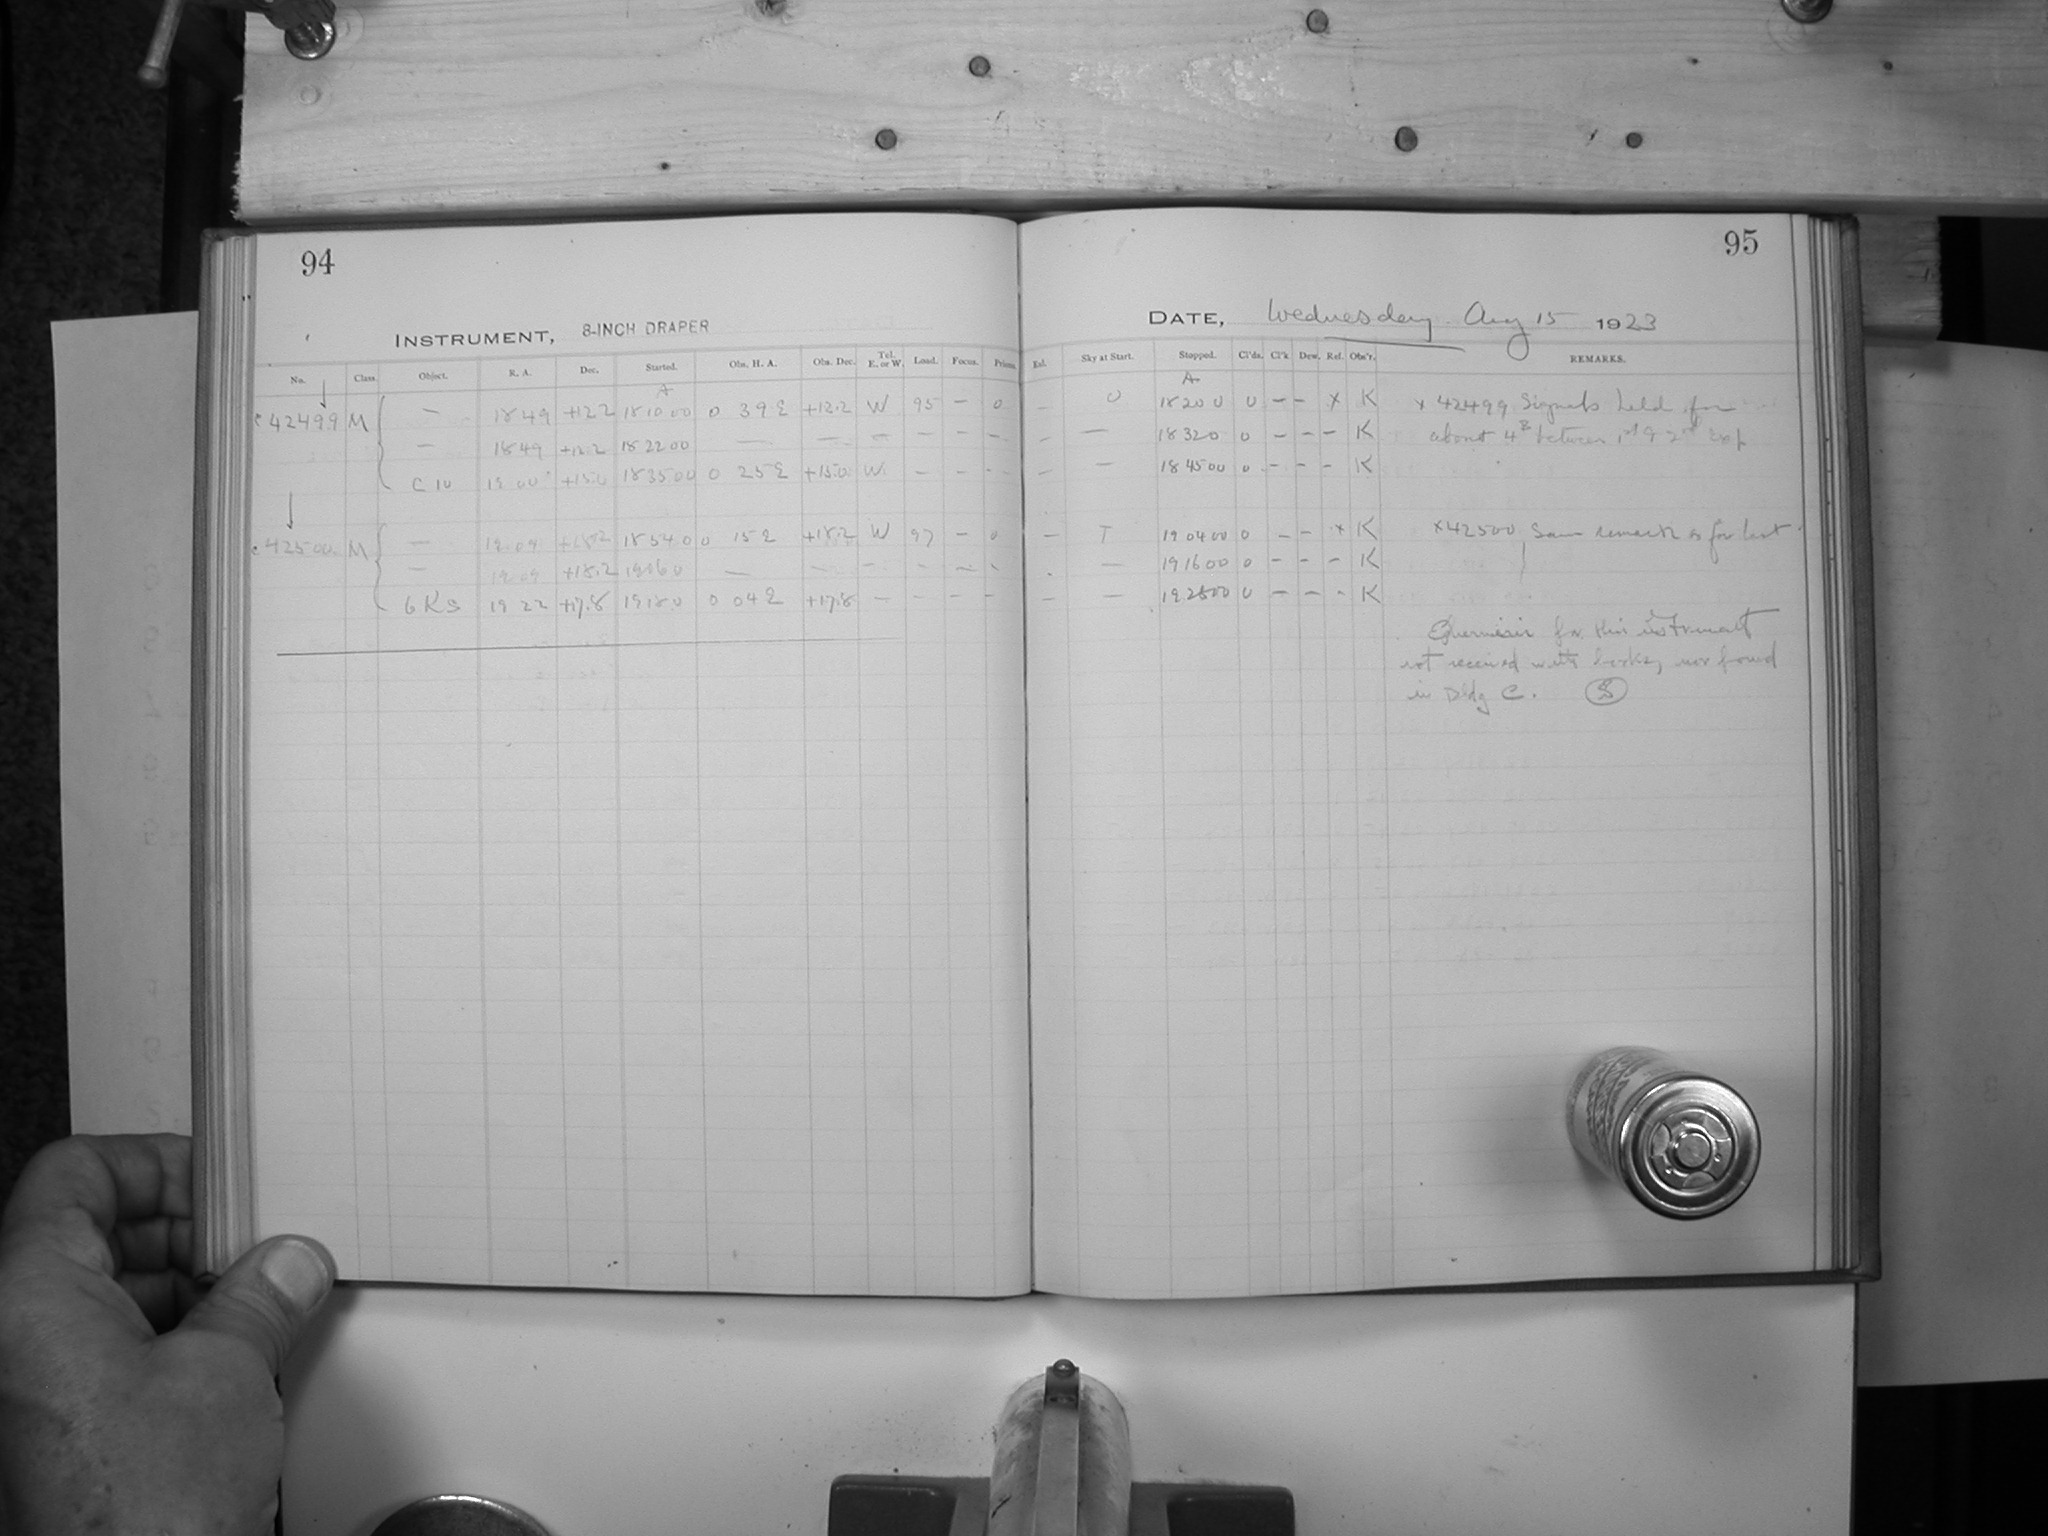 94
95
INSTRUMENT, 8-INCH DRAPER
DATE, Wednesday Aug 15 1923
No. Class. Object. R. A. Dec. Started. Obs. H. A. Obs. Dec. Tel. E. or W. Load. Focus. Prism. Exl. Sky at Start. Stopped. Cl'ds. Cl'k Dew. Ref. Obs'r. REMARKS.
A A
c 42499 M — 18 49 +12.2 18 10 00 0 39 E +12.2 W 95 — 0 — 0 18 20 0 0 — — x K x 42499 Signals held for
— 18 49 +12.2 18 22 00 — — — — — — — — 18 32 0 0 — — — K about 4 between 1st & 2nd Exp
C 10 19 00 +15.0 18 35 00 0 25 E +15.0 W. — — — — — 18 45 00 0 — — — K
c 42500 M — 19 09 +18.2 18 54 0 0 15 E +18.2 W 97 — 0 — T 19 04 00 0 — — x K x 42500 Same remark as for last
— 19 09 +18.2 19 06 0 — — — — — — — 19 16 00 0 — — — K
6 K s 19 22 +17.8 19 18 0 0 04 E +17.8 — — — — — — 19 28 00 0 — — — K
Ephemeris for this instrument
not received with books, nor found
in Bldg C. S